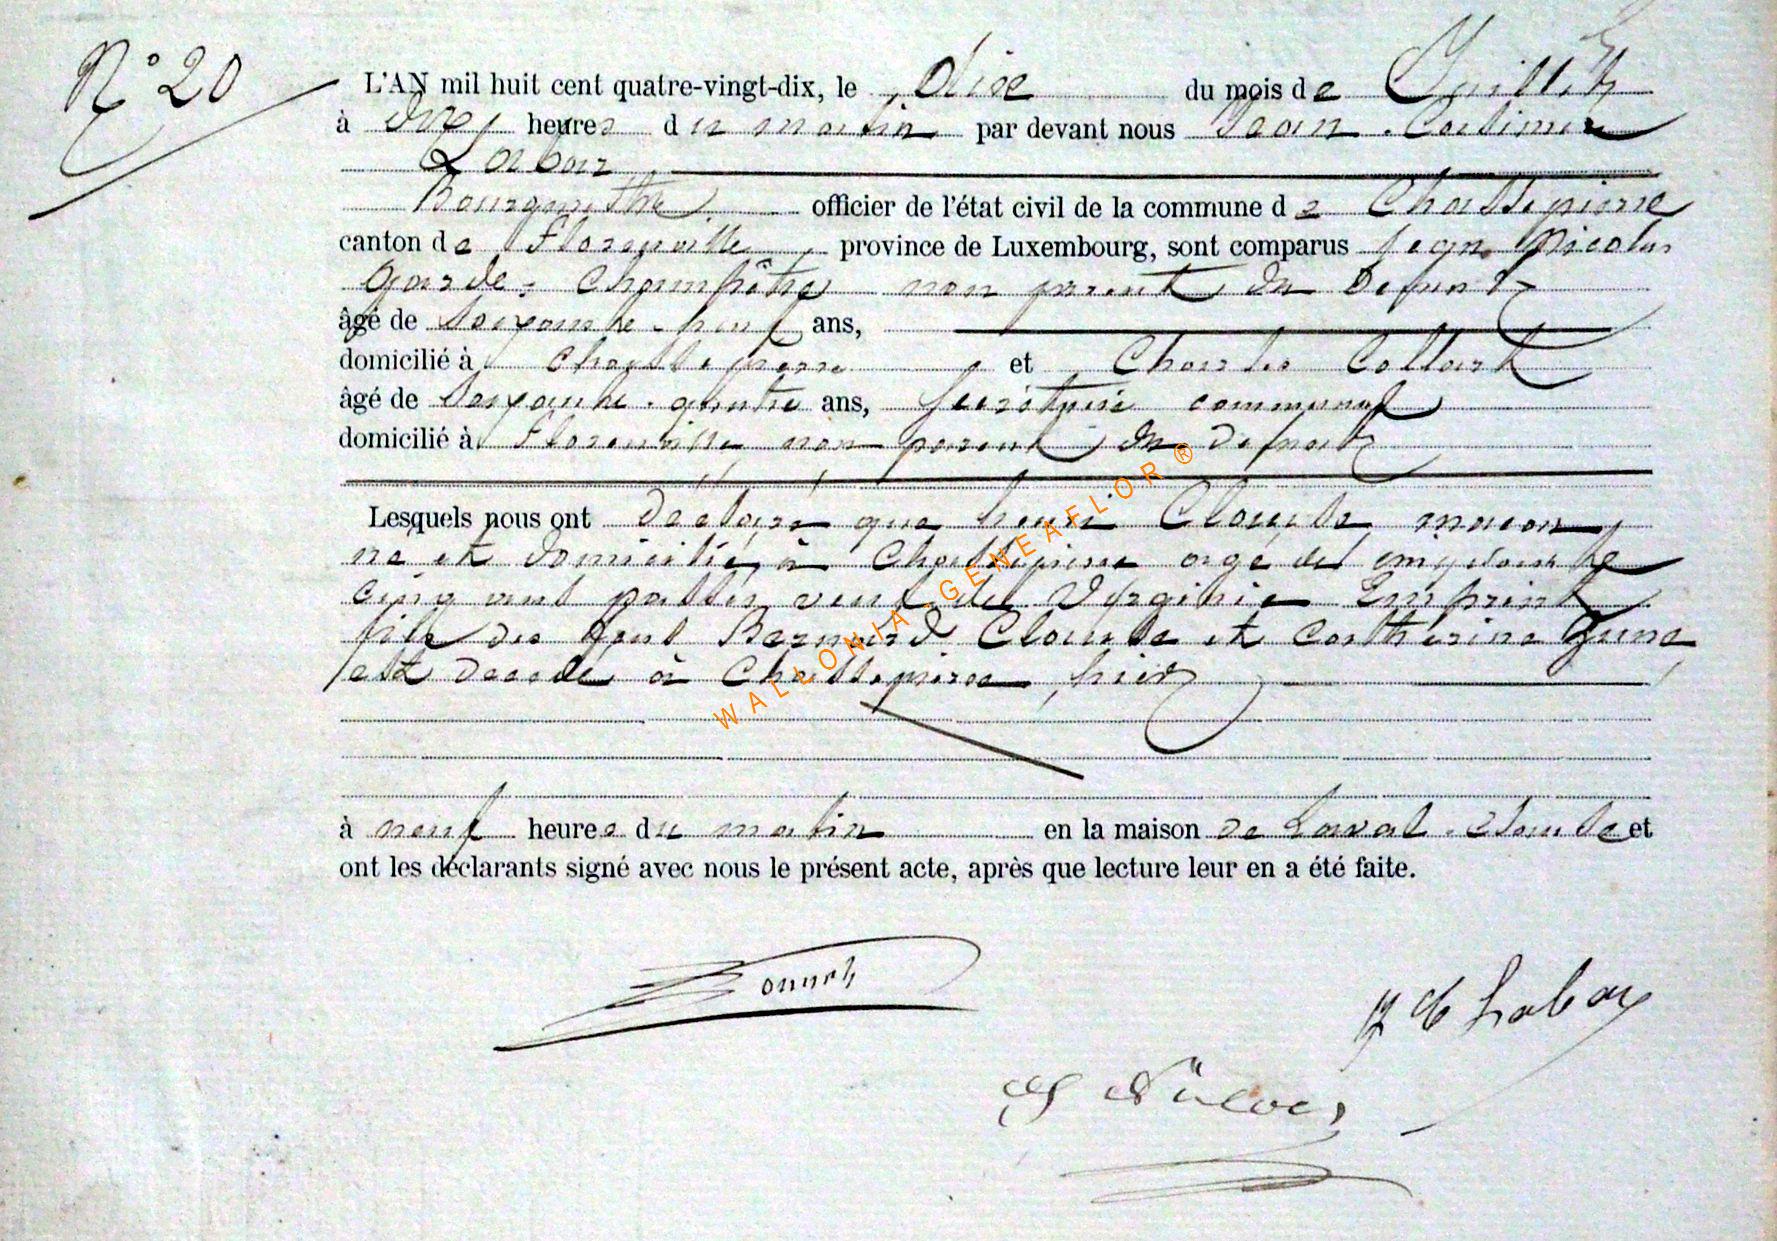 N° 20
L'AN mil huit cent quatre-vingt-dix, le dixe du mois de Juillet
à dix heures du matin par devant nous Jean-Casimir
Labar
Bourgmestre officier de l'état civil de la commune de Chassepierre
canton de Florenville province de Luxembourg, sont comparus Jean Nicolas
garde-champêtre non parent du Defunt
âgé de Soixante-neuf ans,
domicilié à Chassepierre et Charles Collart
âgé de Soixante-quatre ans, Secrétaire communal
domicilié à Florenville non parent du Defunt
Lesquels nous ont déclaré que henri Claude, macon
né et domicilié à Chassepierre agé de
cinq ans passés veuf de Virginie
fils de feus Bernard Claude et Catherine
est decede à Chassepierre, hier
à neuf heures du matin en la maison de Laval-Claude et
ont les déclarants signé avec nous le présent acte, après que lecture leur en a été faite.
J C Labar
WALLONIA-GENEAFLOR ®